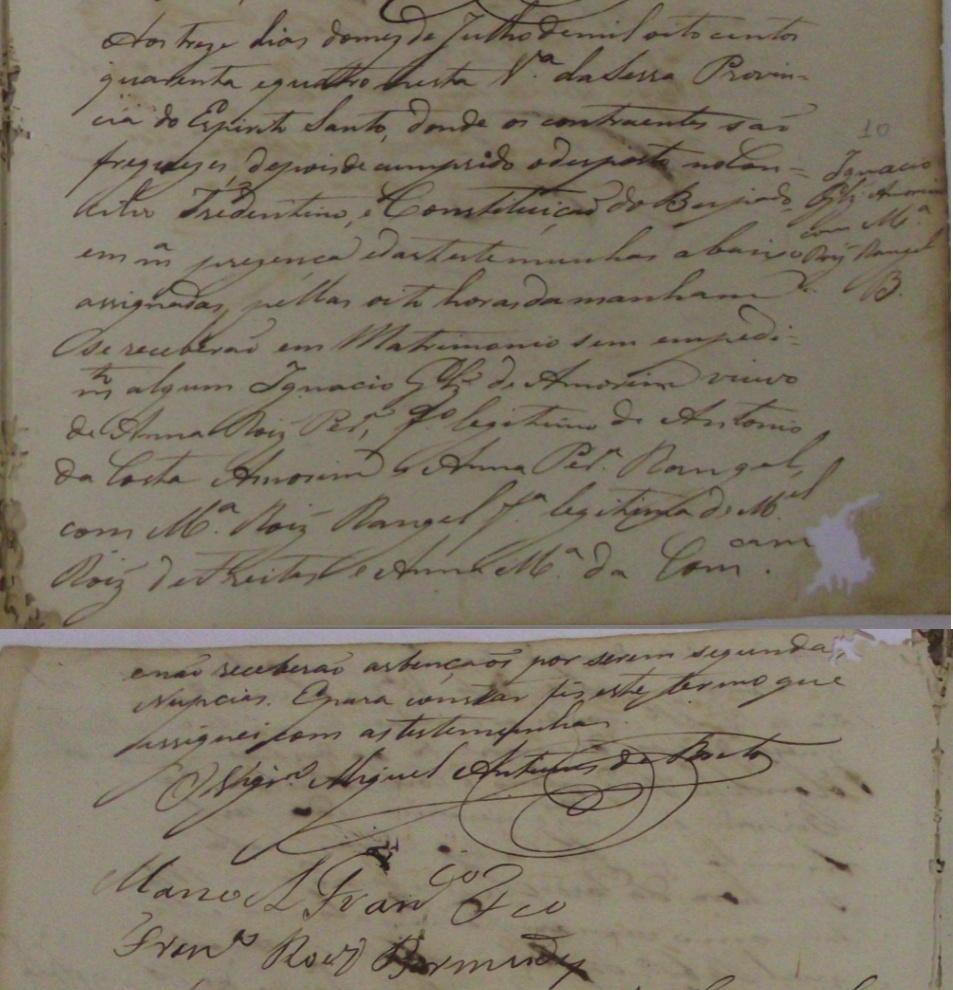 Aos treze dias do mez de Julho de mil oito centos
quarenta e quatro nesta V.ª da Serra Provin-
cia do Espirito Santo, donde os contraentes saõ
freguezes, depois de cumprido o desposto no Con-
cilio Tredentino, e Constituiçaõ do Bispado,
em m.ª prezença e das testemunhas abaixo
assignadas, pellas oito horas da manham
Se receberaõ em Matrimonio sem empedi-
m.to algum Ignacio Glz de Amorim viuvo
de Anna Roiz Per.ª, f.º legitimo de Antonio
da Costa Amorim e Anna Per.ª Rangel,
com M.ª Roiz Rangel f.ª legitima de M.el
Roiz de Freitas e Anna M.ª da Com.cam
10
Ignacio
Glz Amorim
com M.ª
Roiz Rangel
B.
e naõ receberaõ as bençaõs por serem segunda
Nupcias. E para constar fiz este termo que
assignei com as testemunhas.
O Vigr.º Miguel Antunes de Brito
Manoel Fran.co
Fran.co Roiz Bermudes